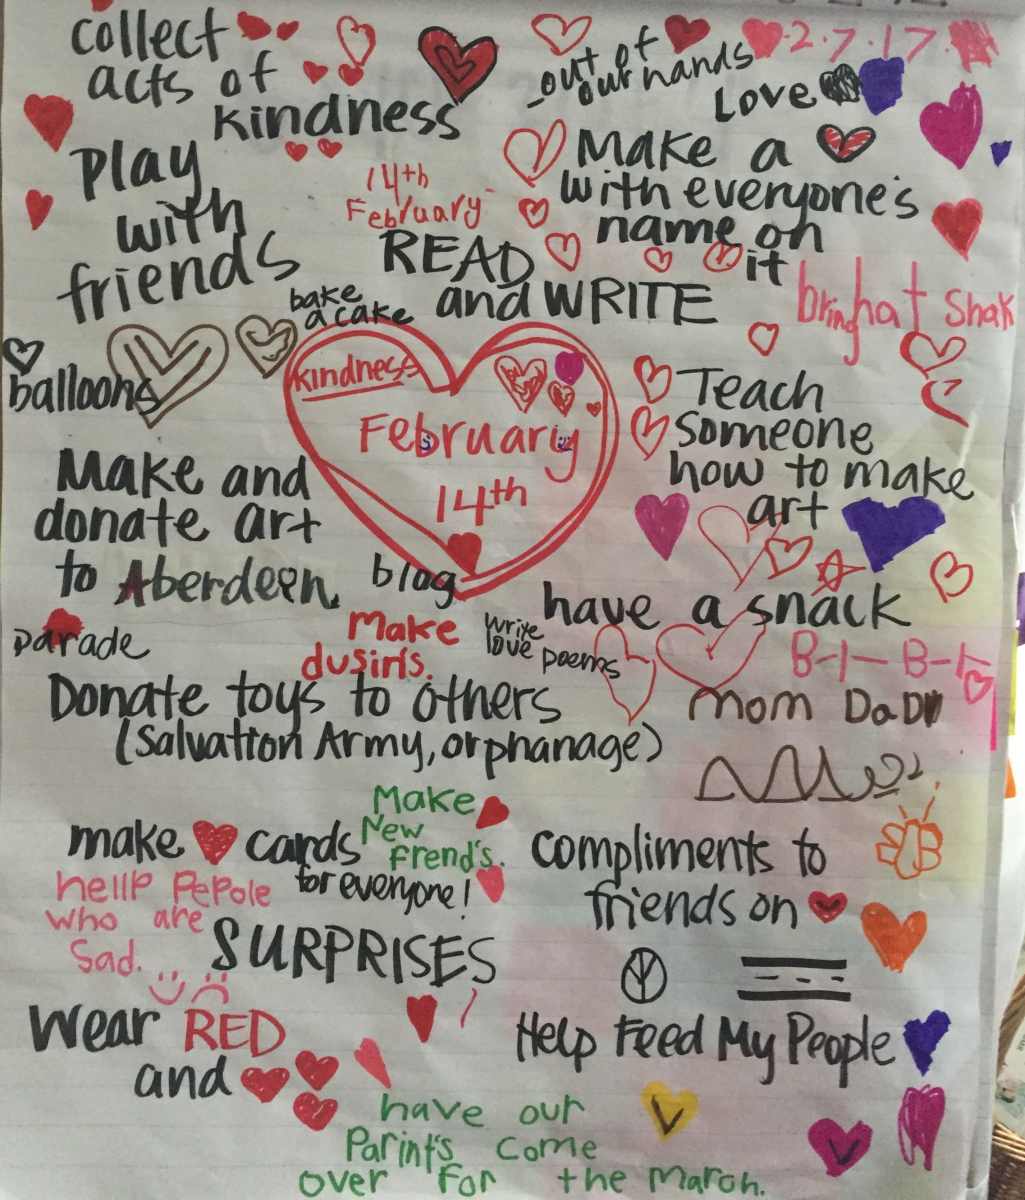 collect
acts of
kindness
out of
our hands
2.7.17.
Love
Play
with
friends
14th
February
Make a
with everyone's
name on
it
READ
and WRITE
bake
a cake
balloons
kindness
February
14th
Teach
Someone
how to make
art
Make and
donate art
to Aberdeen
blog
have a snack
parade
Make
dusiris.
write
love poems
B-I-B-
Mom DaD
Donate toys to others
(Salvation Army, orphanage)
Make
New
Frend's.
make cards
for everyone!
compliments to
friends on
hellp PePole
who are
Sad.
SURPRISES
Wear RED
and
Help Feed My People
have our
Parint's come
over for the March.